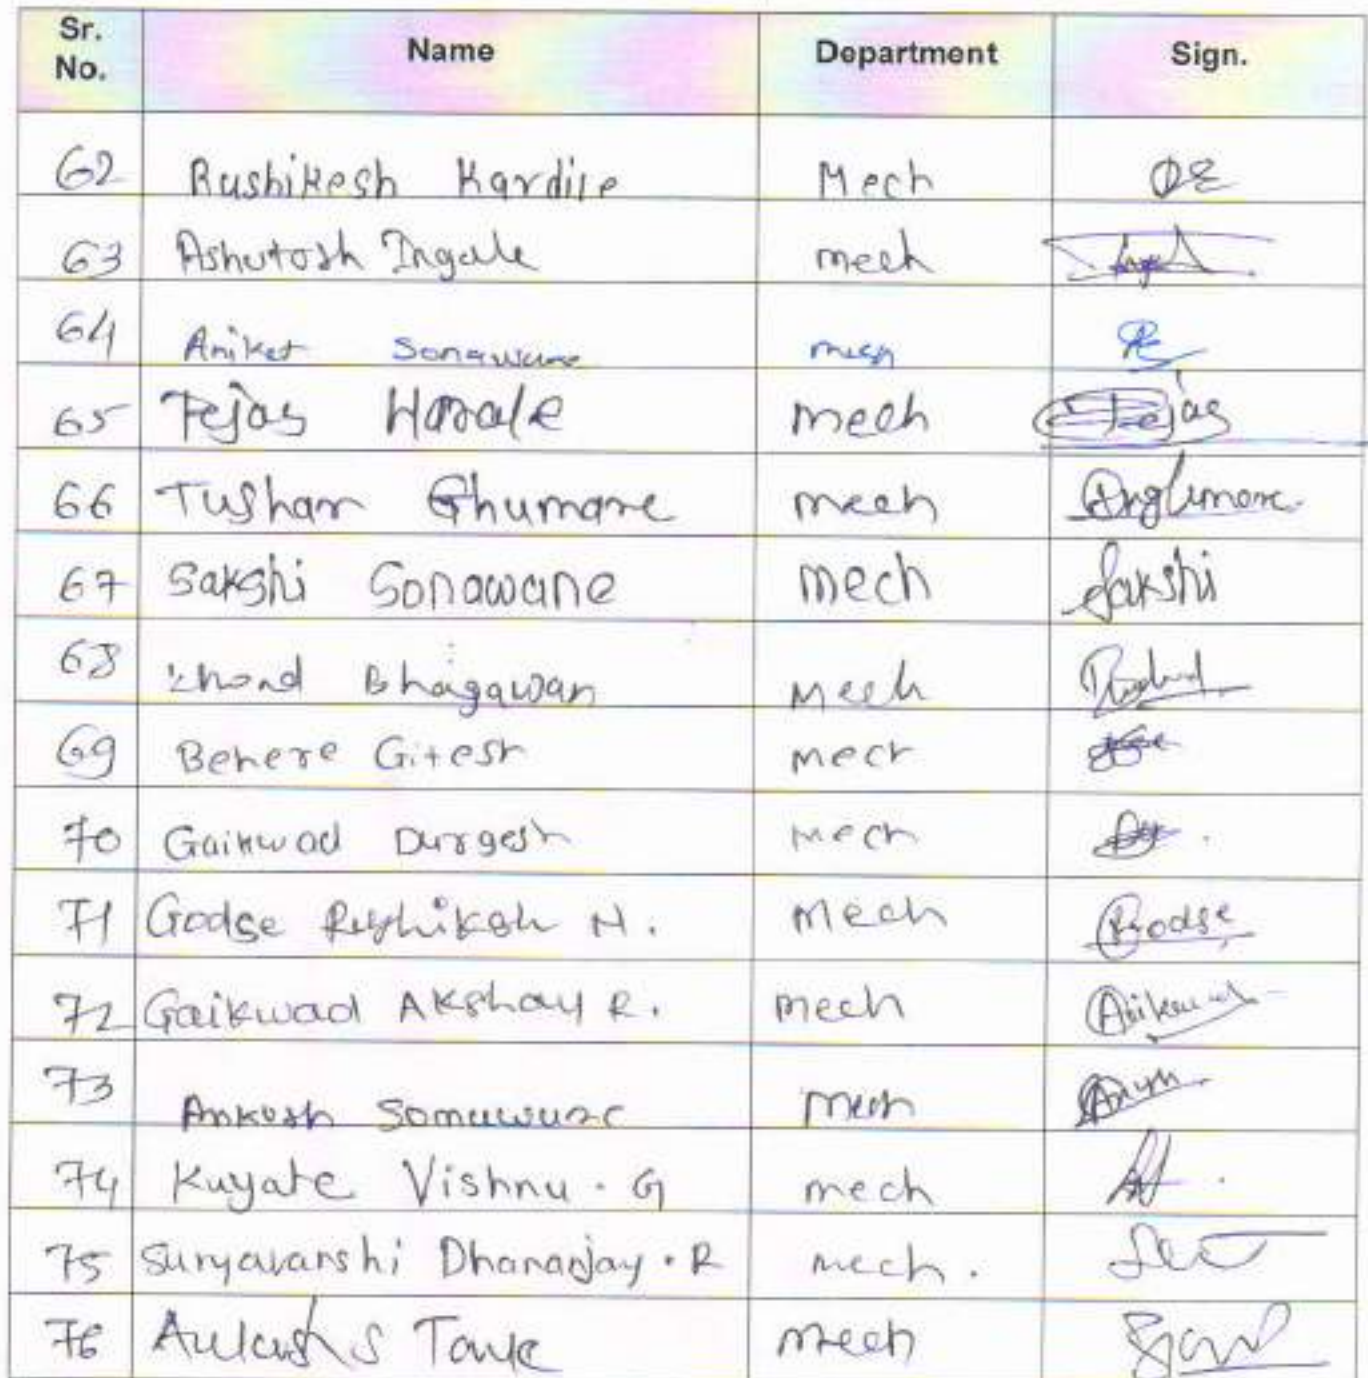 Sr. No. Name Department Sign.
62 Rushikesh Kardile Mech
63 Ashutosh Ingale mech
64 Aniket Sonawane mech
65 Tejas Harale mech Tejas
66 Tushar Ghumare mech
67 Sakshi Sonawane mech Sakshi
68 Bhagawan Mech
69 Behere Gitesh mech
70 Gaikwad Durgesh mech
71 Godse Rushikesh N. Mech Godse
72 Gaikwad Akshay R. mech
73 Ankush mech
74 Kuyate Vishnu . G mech
75 Suryavanshi Dhananjay . R mech.
76 S mech